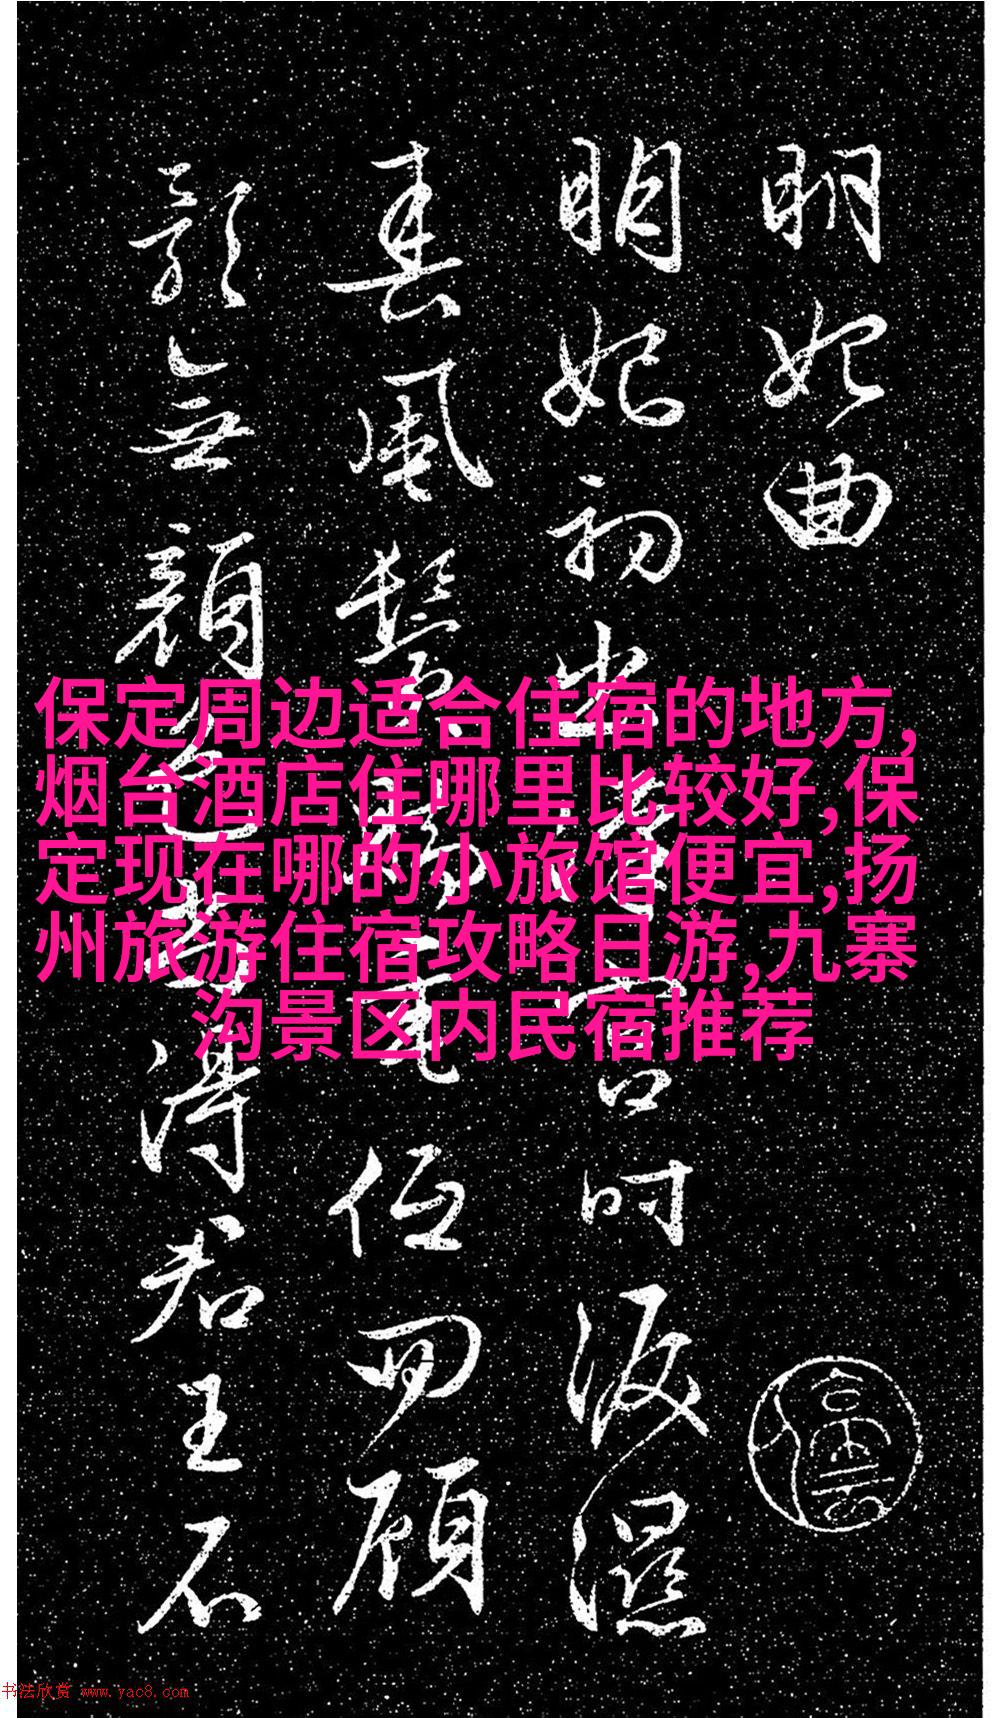 明妃曲
明妃初出漢宮時淚濕
春風鬢腳垂低回顧
影無顏色尚得君王不
保定周边适合住宿的地方,
烟台酒店住哪里比较好,保
定现在哪的小旅馆便宜,扬
州旅游住宿攻略日游,九寨
沟景区内民宿推荐
书法欣赏 www.yac8.com